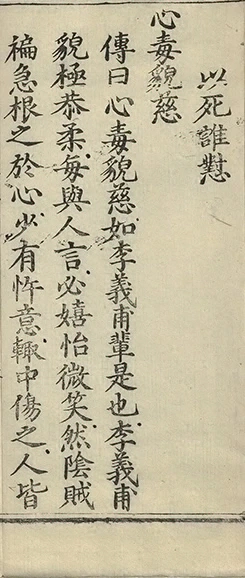 以死誰懟
心毒貌慈
傳曰心毒貌慈如李義甫輩是也李義甫
貌極恭柔每與人言必嬉怡微笑然陰賊
褊急根之於心少有忤意輙中傷之人皆